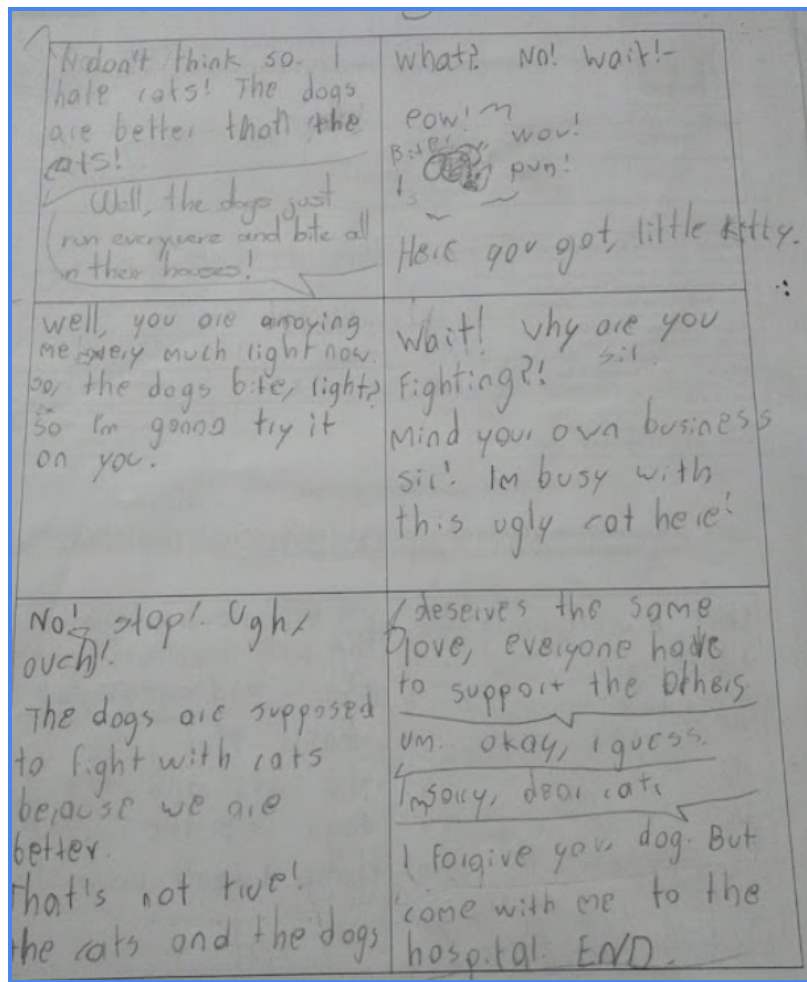 I don't think so. I
hate cats! The dogs
are better than the
cats!
Well, the dogs just
run everywere and bite all
in their houses!
What? No! Wait!-
Pow!
Bite!
wow!
pum!
Here you got, little kitty.
Well, you are annoying
me very much right now.
So, the dogs bite, right?
So I'm gonna try it
on you.
Wait! Why are you
Fighting?! sir.
Mind your own business
sir! Im busy with
this ugly cat here!
No! stop! Ugh,
ouch!
The dogs are supposed
to fight with cats
because we are
better.
That's not true!
the cats and the dogs
deserves the same
love, everyone have
to support the others
Um. okay, i guess.
Imsorry, dear cat.
I Forgive you, dog. But
come with me to the
hospital. END.